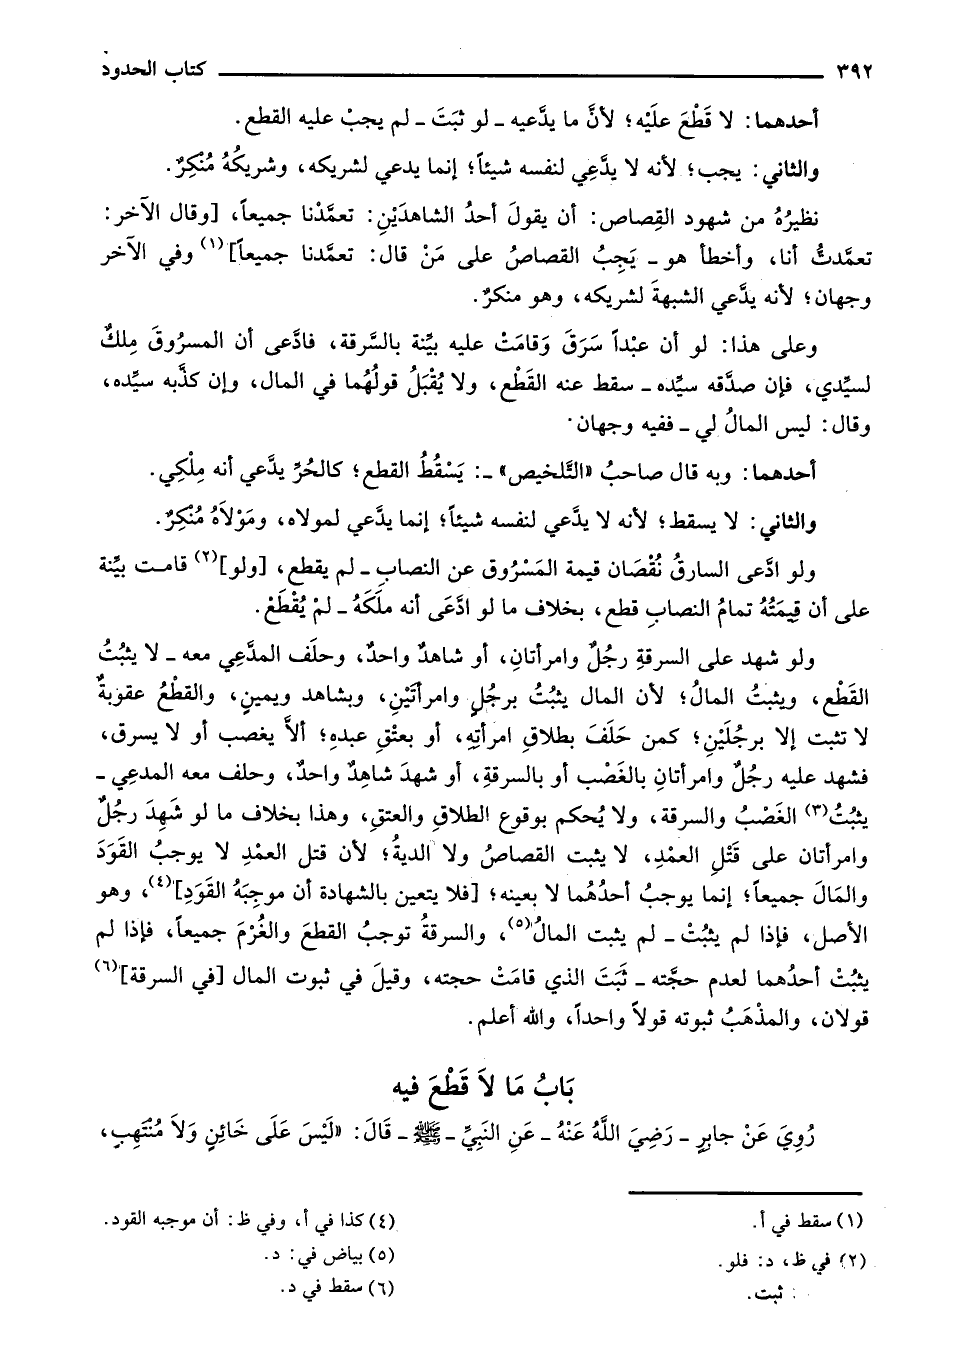 ٣٩٢ كتاب الحدود
أحدهما: لا قَطْعَ علَيْه؛ لأنَّ ما يدَّعيه ـ لو ثبَتَ ـ لم يجبْ عليه القطع.
والثاني: يجب؛ لأنه لا يدَّعِي لنفسه شيئاً؛ إنما يدعي لشريكه، وشريكُهُ مُنْكِرٌ.
نظيرُهُ من شهود القِصاص: أن يقولَ أحدُ الشاهدَيْنِ: تعمَّدْنا جميعاً، [وقال الآخر:
تعمَّدتُّ أنا، وأخطأ هو ـ يَجِبُ القصاصُ على مَنْ قال: تعمَّدنا جميعاً](١) وفي الآخر
وجهان؛ لأنه يدَّعي الشبهةَ لشريكه، وهو منكرٌ.
وعلى هذا: لو أن عبْداً سَرَقَ وَقامَتْ عليه بيِّنة بالسَّرقة، فادَّعى أن المسرُوقَ مِلكٌ
لسيِّدي، فإن صدَّقه سيِّده ـ سقط عنه القَطْع، ولا يُقْبَلُ قولُهُما في المال، وإن كذَّبه سيِّده،
وقال: ليس المالُ لي ـ ففيه وجهان.
أحدهما: وبه قال صاحبُ «التَّلخيص» ـ: يَسْقُطُ القطع؛ كالحُرِّ يدَّعي أنه مِلْكِي.
والثاني: لا يسقط؛ لأنه لا يدَّعي لنفسه شيئاً؛ إنما يدَّعي لمولاه، ومَوْلاَهُ مُنْكِرٌ.
ولو ادَّعى السارقُ نُقْصَان قيمة المَسْرُوق عن النصابِ ـ لم يقطع، [ولو](٢) قامت بيِّنة
على أن قِيمَتُهُ تمامُ النصابِ قطع، بخلاف ما لو ادَّعَى أنه ملَكَهُ ـ لمْ يُقْطَعْ.
ولو شهد على السرقةِ رجُلٌ وامرأتانِ، أو شاهدٌ واحدٌ، وحلَف المدَّعِي معه ـ لا يثبُتُ
القَطْع، ويثبتُ المالُ؛ لأن المال يثبُتُ برجُلٍ وامرأتَيْنِ، وبشاهد ويمينٍ، والقطْعُ عقوبةٌ
لا تثبت إلا برجُلَيْنِ؛ كمن حَلَفَ بطلاقِ امرأتِهِ، أو بعتْقِ عبدهِ؛ ألاَّ يغصب أو لا يسرق،
فشهد عليه رجُلٌ وامرأتانِ بالغَصْب أو بالسرقةِ، أو شهدَ شاهدٌ واحدٌ، وحلف معه المدعِي ـ
يثبُتُ(٣) الغَصْبُ والسرقة، ولا يُحكم بوقوع الطلاقِ والعتقِ، وهذا بخلاف ما لو شَهِدَ رجُلٌ
وامرأتان على قَتْلِ العمْدِ، لا يثبت القصاصُ ولا الديةُ؛ لأن قتل العمْدِ لا يوجبُ القَوَدَ
والمَالَ جميعاً؛ إنما يوجبُ أحدُهُما لا بعينه؛ [فلا يتعين بالشهادة أن موجِبَهُ القَوَدِ](٤)، وهو
الأصل، فإذا لم يثبُتْ ـ لم يثبت المالُ(٥)، والسرقةُ توجبُ القطعَ والغُرْمَ جميعاً، فإذا لم
يثبُتْ أحدُهما لعدم حجَّته ـ ثَبَتَ الذي قامَتْ حجته، وقيلَ في ثبوت المال [في السرقة](٦)
قولان، والمذْهَبُ ثبوته قولاً واحداً، والله أعلم.
بَابُ مَا لاَ قَطْعَ فيه
رُوِيَ عَنْ جابرٍ ـ رَضِيَ اللَّهُ عَنْهُ ـ عَنِ النبيِّ ـ ﷺ ـ قَالَ: «لَيْسَ عَلَى خَائِنٍ وَلاَ مُنْتَهِبٍ،
(١) سقط في أ.
(٢) في ظ، د: فلو.
: ثبت.
(٤) كذا في أ، وفي ظ: أن موجبه القود.
(٥) بياض في: د.
(٦) سقط في د.